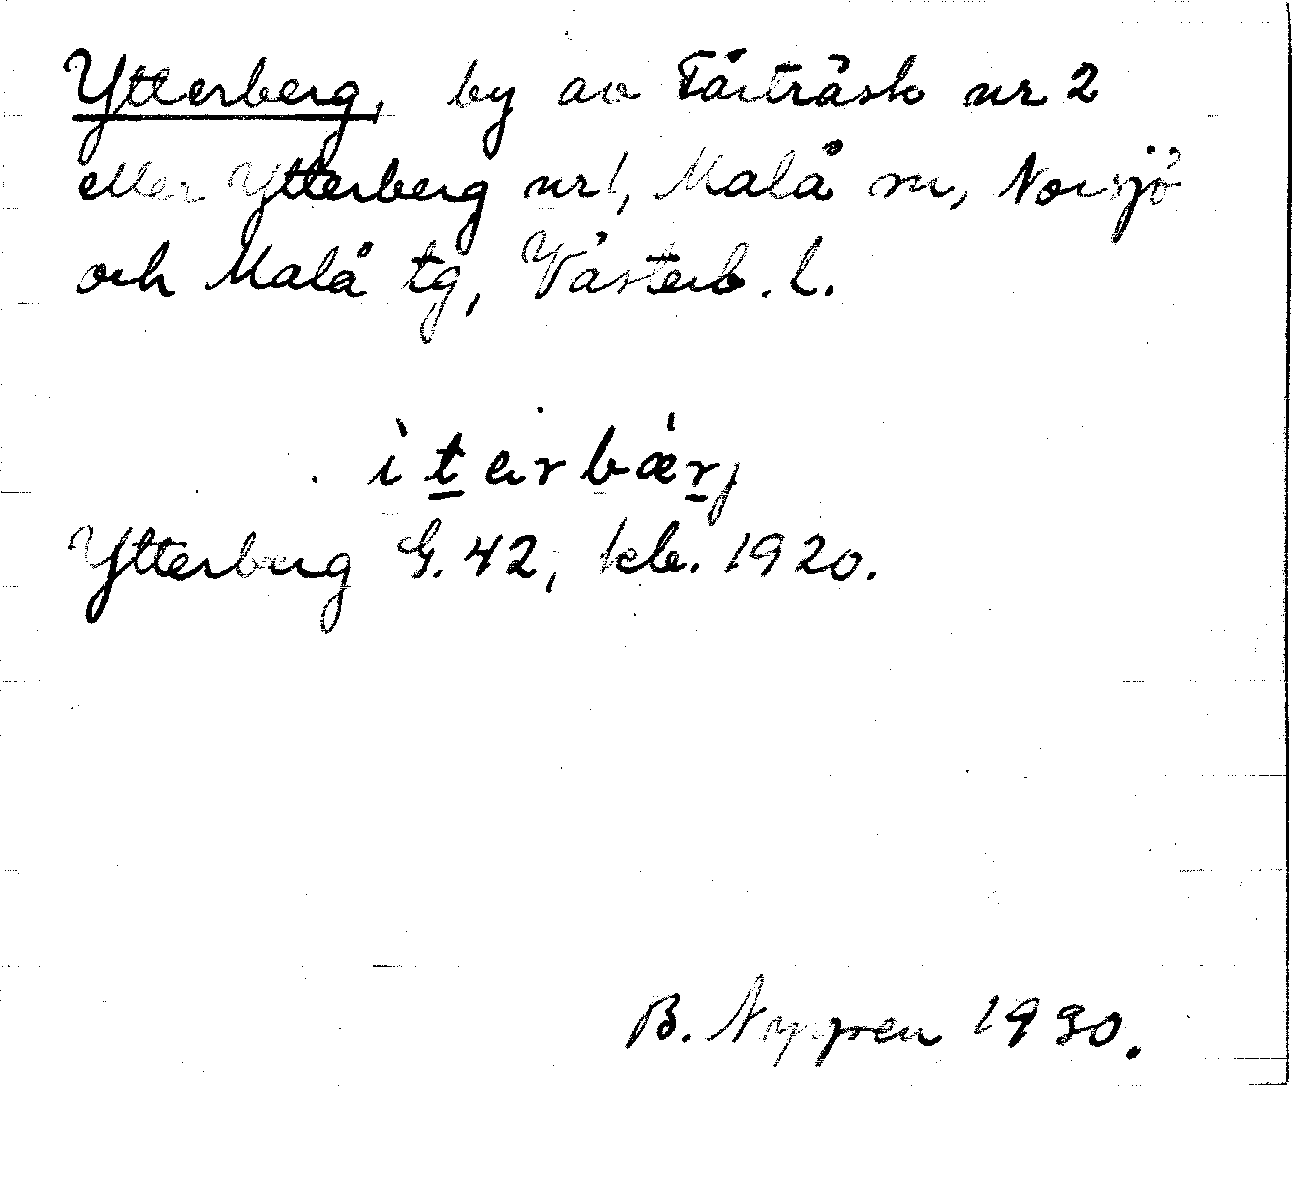 Ytterberg, by av Fårträsk nr 2
eller Ytterberg nr 1, Malå sn, Norsjö
och Malå tg, Västerb. l.
ìt̲erbǽr̲j
Ytterberg G. 42, kb. 1920.
B. 1930.